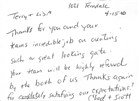 Terry + Lisa
1161 Ferndale
4-15-10
Thanks for you and your
team's incredible job on creating
such a great looking gate.
Your team will be highly referred
by the both of us. Thanks again
for completely satisfying our expectations.